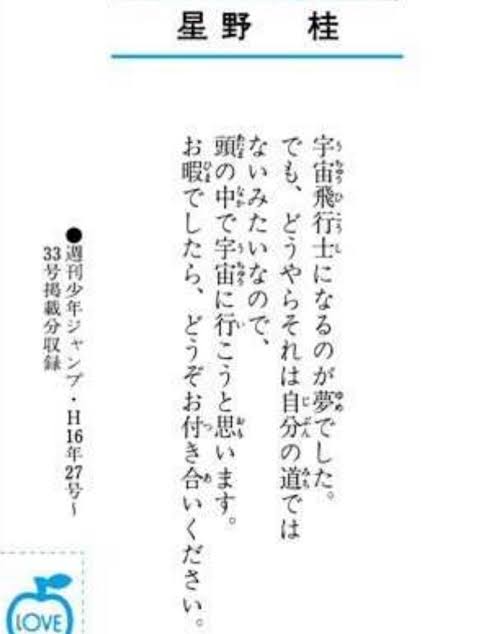 星野 桂
宇宙飛行士になるのが夢でした。
でも、どうやらそれは自分の道では
ないみたいなので、
頭の中で宇宙に行こうと思います。
お暇でしたら、どうぞお付き合いください。
●週刊少年ジャンプ・H16年27号〜
33号掲載分収録
LOVE